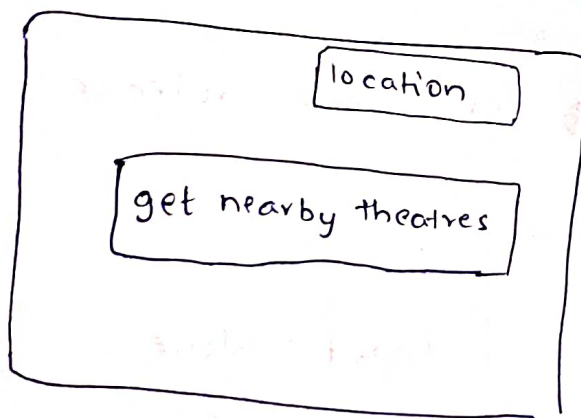 location
get nearby theatres